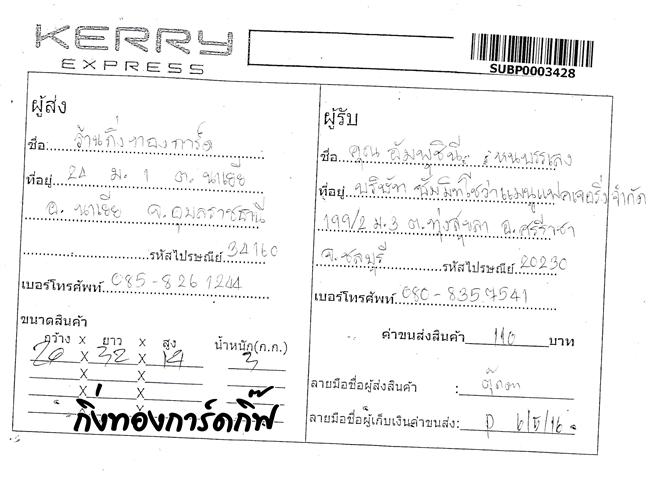 KERRY
EXPRESS
SUBP0003428
ผู้ส่ง
ชื่อ ร้านกิ่งทองการ์ด
ที่อยู่ 24 ม. 1 ต. นาเยีย
อ. นาเยีย จ. อุบลราชธานี
รหัสไปรษณีย์ 34160
เบอร์โทรศัพท์ 085-826 1244
ขนาดสินค้า
กว้าง x ยาว x สูง น้ำหนัก(ก.ก.)
X 32 X 14 3
X X
X X
X X
กิ่งทองการ์ดกิ๊ฟ
ผู้รับ
ชื่อ คุณ
ที่อยู่ บริษัท ซัมมิทโชว่าแมนูแฟคเจอริ่ง จำกัด
199/2 ม.3 ต.ทุ่งสุขลา อ.ศรีราชา
จ.ชลบุรี รหัสไปรษณีย์ 20230
เบอร์โทรศัพท์ 080-8357541
ค่าขนส่งสินค้า 110 บาท
ลายมือชื่อผู้ส่งสินค้า :
ลายมือชื่อผู้เก็บเงินค่าขนส่ง: